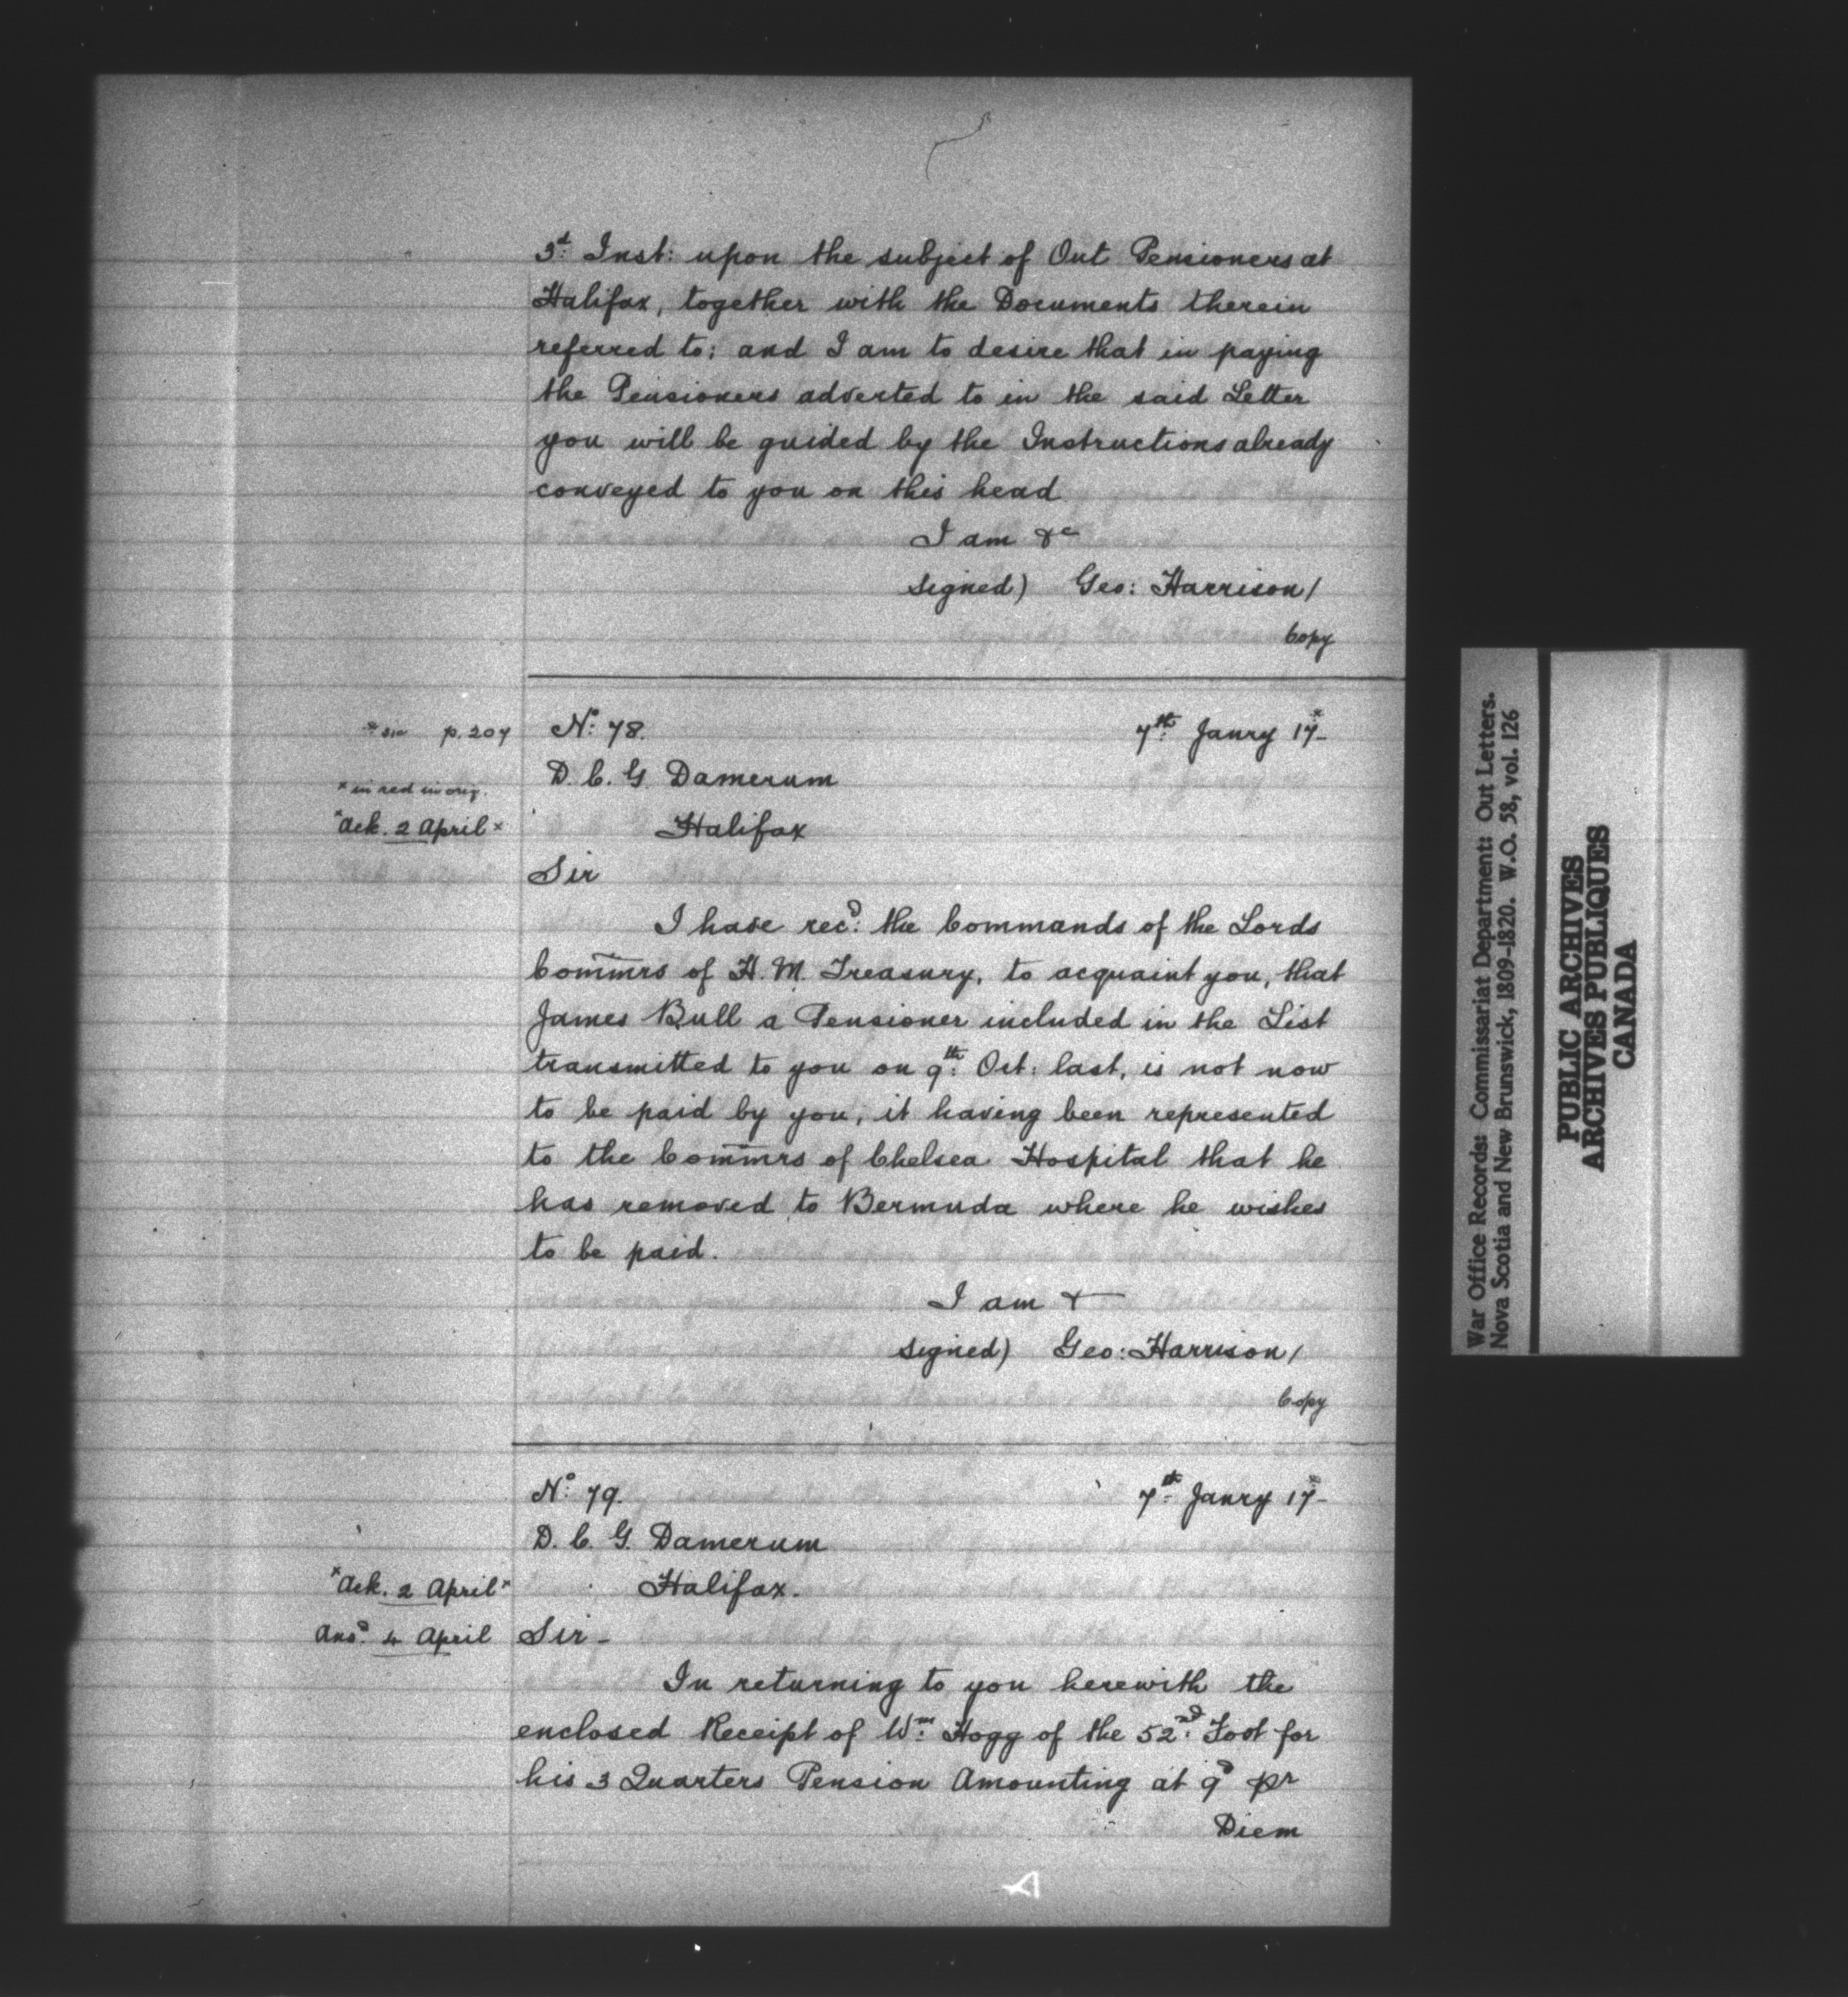 3d Inst: upon the subject of Out Pensioners at
Halifax, together with the Documents therein
referred to; and I am to desire that in paying
the Pensioners adverted to in the said Letter
you will be guided by the Instructions already
conveyed to you on this head
I am &c
signed) Geo: Harrison/
Copy
*sic p. 207
No: 78.
7th: Janry 17*-
D. C. G. Damerum
*in red in orig.
*Ack. 2 April*
Halifax
Sir
I have recd: the Commands of the Lords
Commrs of H. M. Treasury, to acquaint you, that
James Bull a Pensioner included in the List
transmitted to you on 9th: Oct: last, is not now
to be paid by you, it having been represented
to the Commrs of Chelsea Hospital that he
has removed to Bermuda where he wishes
to be paid.
I am &
signed) Geo: Harrison/
Copy
No: 79.
7th: Janry 17*-
D. C. G. Damerum
*Ack. 2 April*
Halifax.
Ansd: 4 April
Sir-
In returning to you herewith the
enclosed Receipt of Wm: Hogg of the 52nd: Foot for
his 3 Quarters Pension Amounting at 9d pr
Diem
War Office Records: Commissariat Department: Out Letters.
Nova Scotia and New Brunswick, 1809-1820. W.O. 58, vol. 126
PUBLIC ARCHIVES
ARCHIVES PUBLIQUES
CANADA